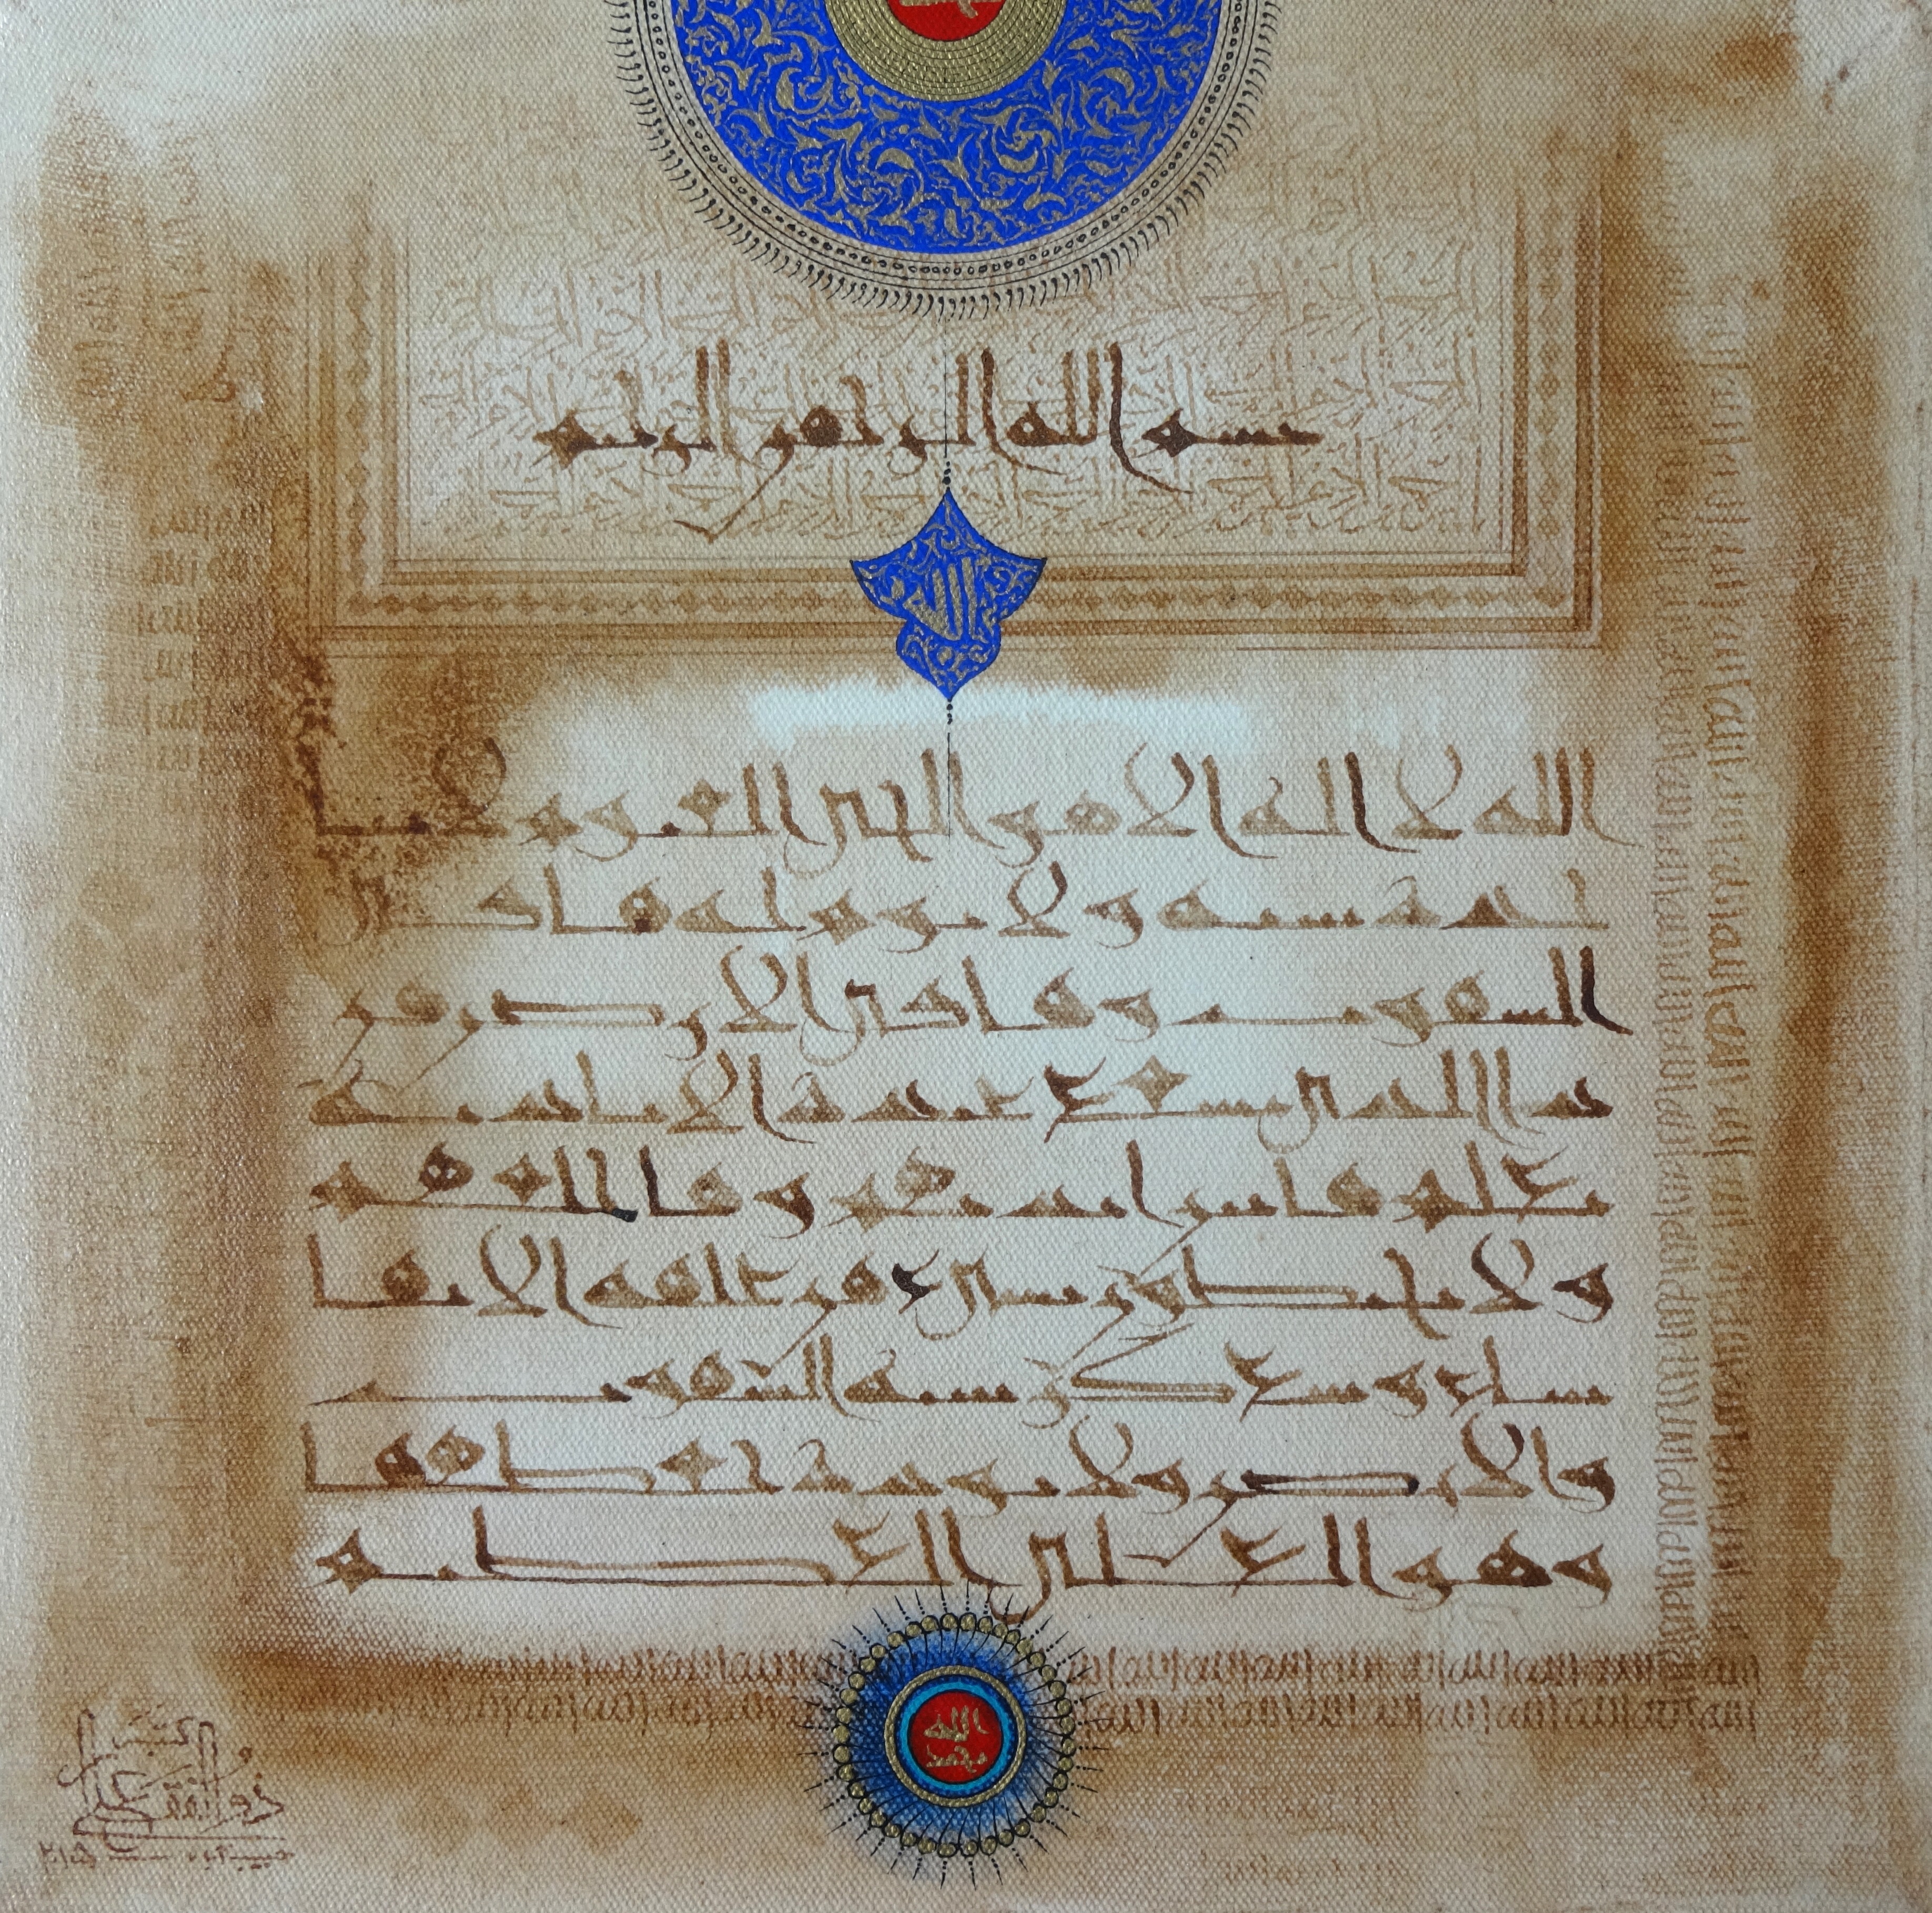 بسم الله الرحمن الرحيم
الله
الله لا اله الا هو الحي القيوم لا تا
خذه سنة ولا نوم له ما في
السموت وما في الارض من
ذا الذي يشفع عنده الا باذنه
يعلم ما بين ايديهم وما خلفهم
ولا يحيطون بشيء من علمه الا بما
شاء وسع كرسيه السموت
والارض ولا يوده حفظهما
وهو العلي العظيم
الله
محمد
كتبه